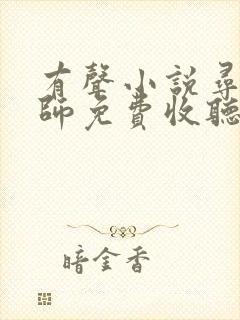 有聲小說尋
師免費收聽
暗金香